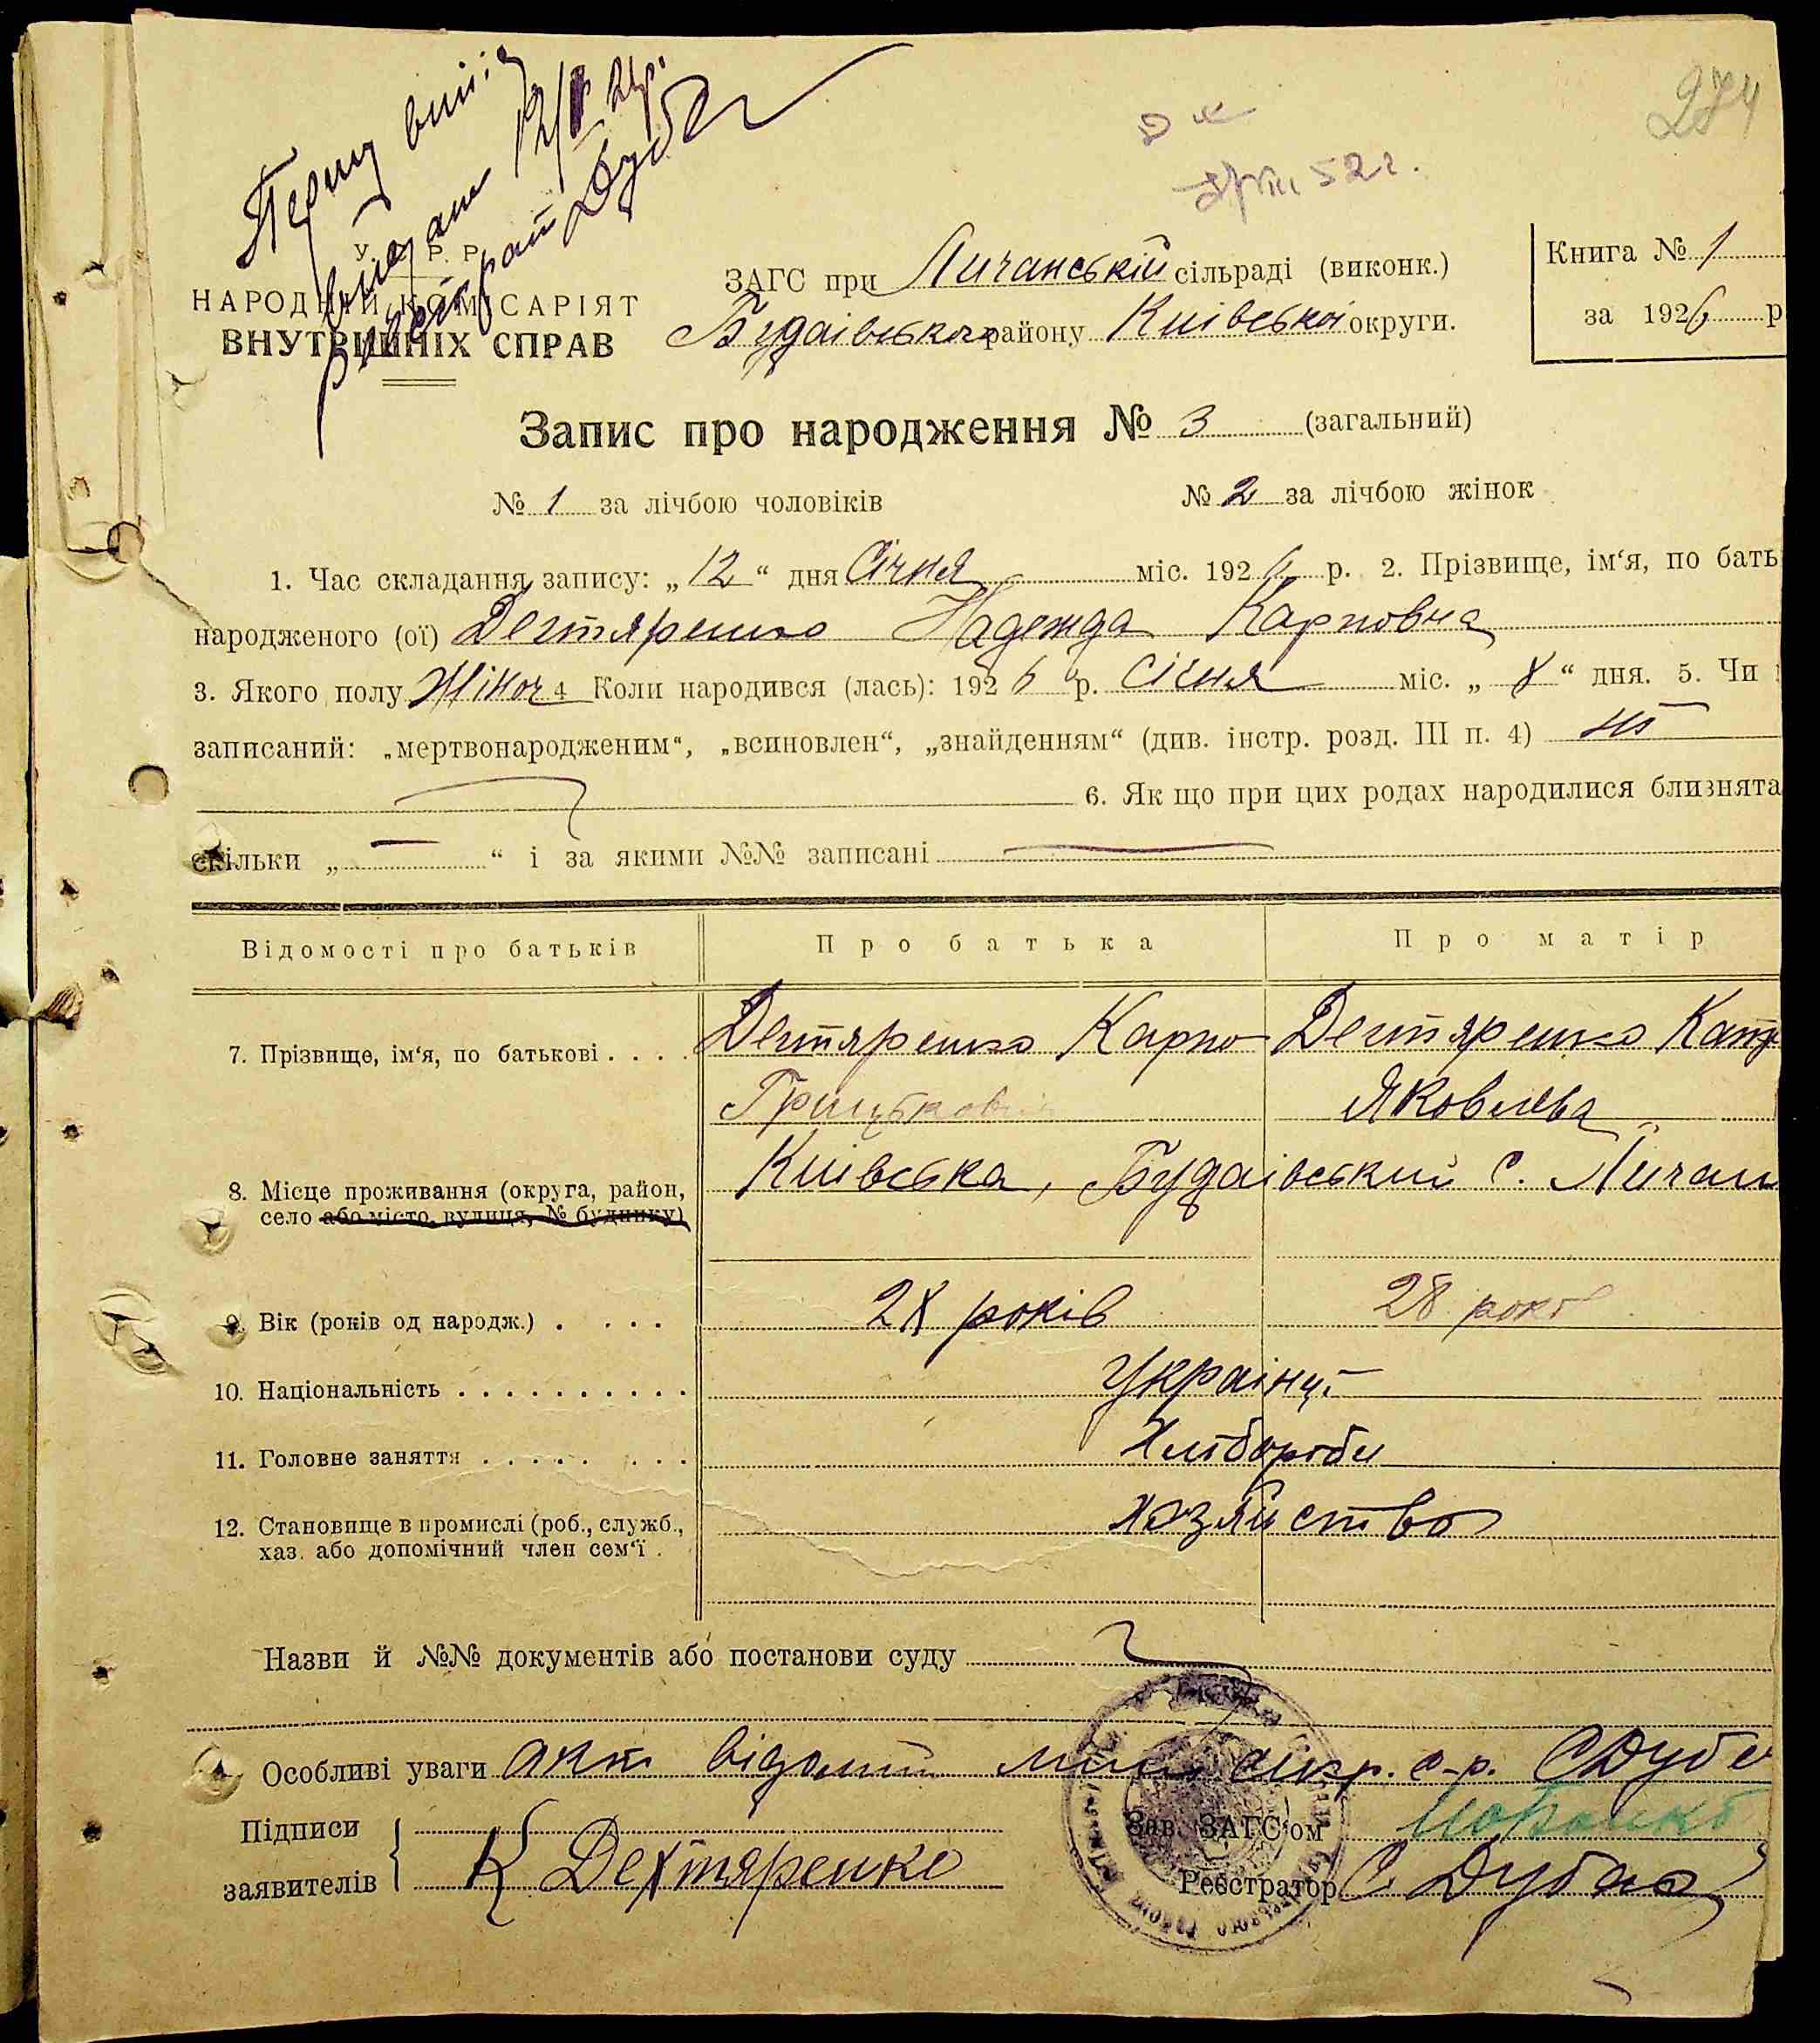 274
52 г.
У. Р. Р.
НАРОДНИЙ КОМІСАРІЯТ
ВНУТРІШНІХ СПРАВ
ЗАГС при Личанській сільраді (виконк.)
Будаівського району Киівськоі округи.
Книга № 1
за 1926 р
Запис про народження № 3 (загальний)
№ 1 за лічбою чоловіків № 2 за лічбою жінок
1. Час складання запису: „12“ дня Січня міс. 1926 р. 2. Прізвище, ім‘я, по бать
народженого (ої) Дегтяренко Надежда Карповна
3. Якого полу Жіноч 4 Коли народився (лась): 1926 р. Січня міс. „8“ дня. 5. Чи
записаний: „мертвонародженим“, „всиновлен“, „знайденням“ (див. інстр. розд. III п. 4) ні
6. Як що при цих родах народилися близнята
скільки „ “ і за якими №№ записані
Відомості про батьків Про батька Про матір
7. Прізвище, ім‘я, по батькові . . . . Дегтяренко Карпо Дегтяренко Катр
Грицькович Яковлева
8. Місце проживання (округа, район, Киівська, Будаівський с. Личан
село або місто, вулиця, № будинку)
9. Вік (років од народж.) . . . . 28 років 28 років
10. Національність . . . . . . . . . . Украінці
11. Головне заняття . . . . . . . . Хлібороби
12. Становище в промислі (роб., служб., хозяйство
хаз. або допомічний член сем‘ї .
Назви й №№ документів або постанови суду
Особливі уваги акт секр. с-р. СДуб
Підписи
заявителів К Дехтяренко
Зав. ЗАГС‘ом
Реєстратор С. Дубас